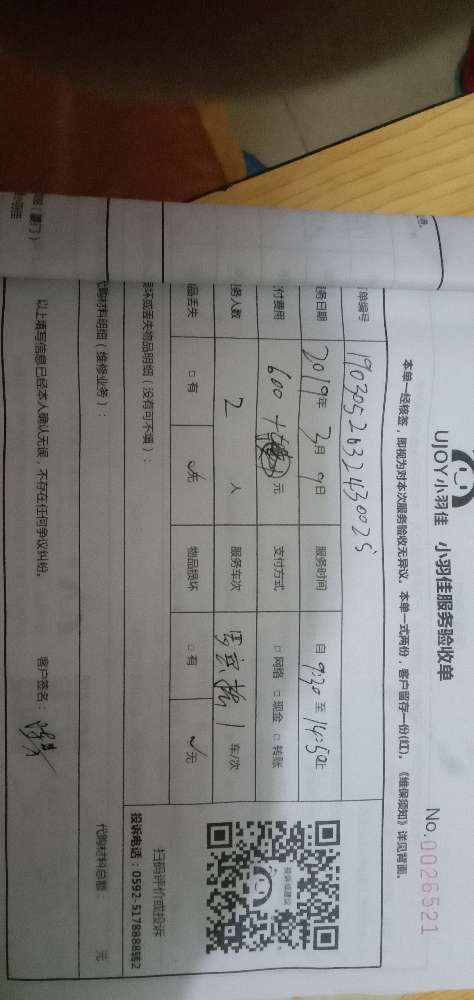 UJOY小羽佳 小羽佳服务验收单
No.0026521
本单一经核签，即视为对本次服务验收无异议。本单一式两份，客户留存一份(红)。《维保须知》详见背面。
单编号 1903052632430025
务日期 2019年 3月 9日 服务时间 自 9:30 至 14:50止
付费用 600 + 元 支付方式 □网络 □现金 □转账
务人数 2 人 服务车次 1 车/次
品丢失 □有 ✓无 物品损坏 □有 ✓无
损坏或丢失物品明细（没有可不填）：
扫码评价或投诉
投诉电话：0592-5178888转2
代购材料明细（维修业务）：
代购材料总额： 元
以上填写信息已经本人确认无误，不存在任何争议纠纷。 客户签名：
投诉或建议
（厦门）